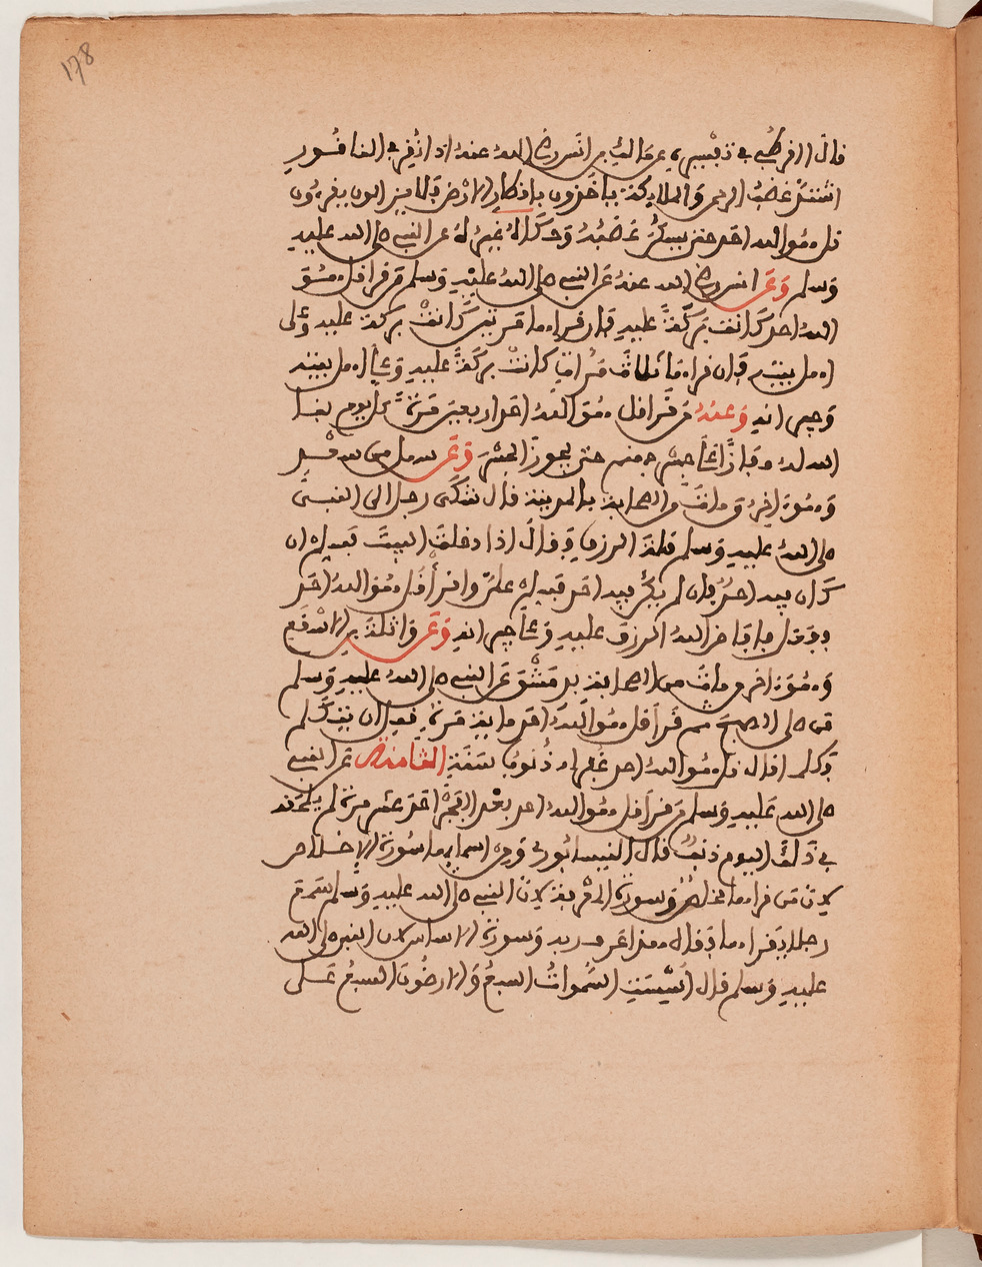 178
قال القرطبي في تفسيره عن مالك بن انس رضي الله عنه اذا نُقِر في الناقُور
اشتدَّ غضبُ الرحمن والملايكة ياخذون باقطار الارض فلا يزالون يقرءون
قل هُوَ الله احد حتى يسكنُ غضبُه وحكاهُ غيرُهُ عن النبي صلى الله عليه
وسلم وَعَن انس رضي الله عنه عَن النبي صلى اللهُ عليْهِ وَسلم مَن قرأ قل هُوَ
اللهُ احد كَانت بَركَةً عليهِ فإن قرأها مرتين كَانتْ بركة عليه وَعلى
اهل بيته فإن قرأها ثلاثَ مَرَّاتٍ كانتْ بركَةً عليهِ وَعلى اهل بيته
وَجيرانِهِ وَعنهُ مَن قَرَأ قل هُوَ اللهُ احد اربعينَ مَرةً كل يوم بنا
الله لهُ منارًا على جسر جهنم حتى يجوزَ الجسْرَ وَعَن سهل بن سعْدٍ
وَهُوَ اخِرُ مَن ماتَ من الصحابة بالمدينة قال شكَى رجل الى النبي
صلى اللهُ عليه وَسلم قلةَ الرزق فقالَ اذا دخلتَ البيتَ فسلم ان
كَان فيه احدٌ فإن لم يكُن فيه احد فسلم علىَّ واقرأ قُل هُوَ اللهُ احد
ففعل فافاضَ اللهُ الرزقَ عليهِ وَعلى جيرانِهِ وَعَن وَاثلةَ بن الاسْقَع
وَهُوَ اخر من ماتَ من الصحابة بدمَشْق عَن النبي صلى الله عليهِ وَسلم
من صلى الصبحَ ثم قَرأ قل هُوَ اللهُ احد مايةَ مَرةٍ قبل ان يتكَلم
فكلما قال قل هُوَ اللهُ احد غفر له ذُنوبُ سَنَةٍ الثامنة عَن النبي
صلى الله عَليهِ وَسلم مَن قرأ قل هُوَ اللهُ احد بعْد الفَجْرِ احدَ عشر مرة لم يلحَقه
في ذلكَ اليوم ذنبٌ قال النيسابُوري وَمن اسمايِها سُورَةُ الإخلاص
لانّ مَن قرأها تخلصُ وَسورةُ المعْرفة لانّ النبي صلى الله عليهِ وَسلم سَمِعَ
رجلا يقرأها فقال هذا عَرف ربه وَسورَةُ الاساس لان النبي صلى الله
عليهِ وَسلم قال اُسِّسَتِ السَّمواتُ السبعُ وَالارضُونَ السبعُ عَلى